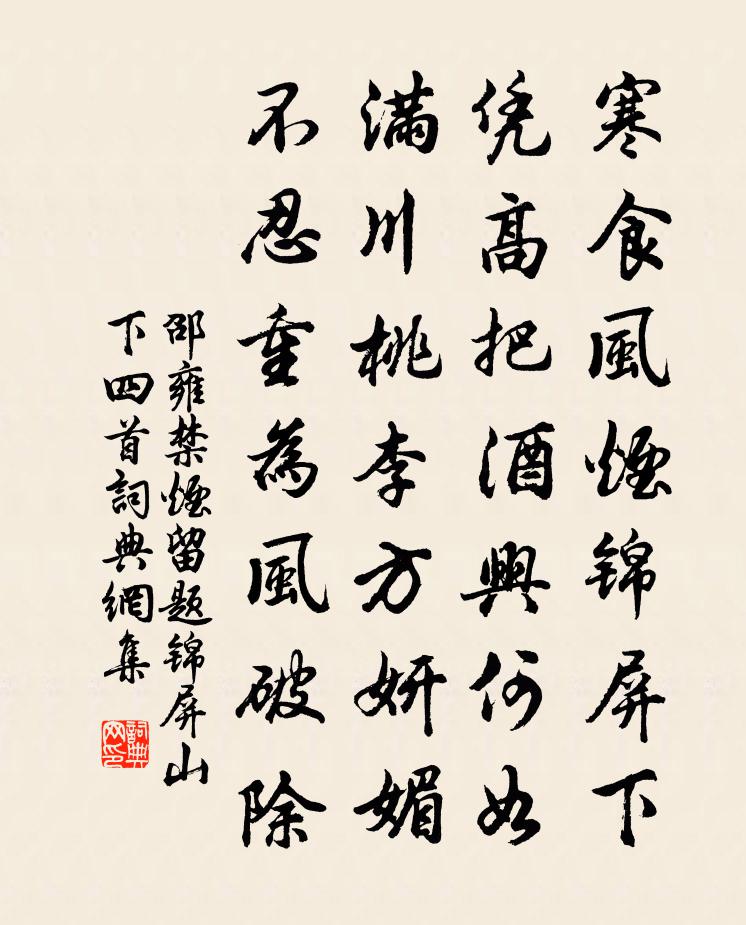 寒食風煙锦屏下
凭高把酒興何如
滿川桃李方妍媚
不忍重為風破除
邵雍禁煙留题锦屏山
下四首詞典網集
詞典
网印